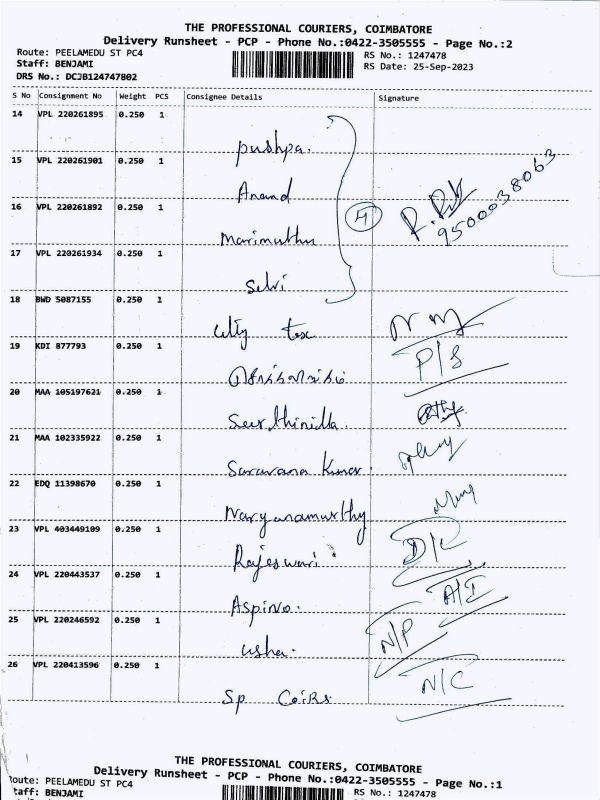 THE PROFESSIONAL COURIERS, COIMBATORE
Delivery Runsheet - PCP - Phone No.:0422-3505555 - Page No.:2
Route: PEELAMEDU ST PC4
RS No.: 1247478
Staff: BENJAMI
RS Date: 25-Sep-2023
DRS No.: DCJB124747802
S No Consignment No Weight PCS Consignee Details Signature
14 VPL 220261895 0.250 1
pushpa.
15 VPL 220261901 0.250 1
Anand
16 VPL 220261892 0.250 1
4
9500038063
Marimuthu
17 VPL 220261934 0.250 1
Selvi
18 BWD 5087155 0.250 1
city tex
19 KDI 877793 0.250 1
P/S
20 MAA 105197621 0.250 1
21 MAA 102335922 0.250 1
Saravana Kumar.
22 EDQ 11398670 0.250 1
Naryanamurthy
23 VPL 403449109 0.250 1
D/L
Rajeswari
24 VPL 220443537 0.250 1
A/I
25 VPL 220246592 0.250 1
N/P
usha.
26 VPL 220413596 0.250 1
N/C
Sp
THE PROFESSIONAL COURIERS, COIMBATORE
Delivery Runsheet - PCP - Phone No.:0422-3505555 - Page No.:1
Route: PEELAMEDU ST PC4
RS No.: 1247478
Staff: BENJAMI